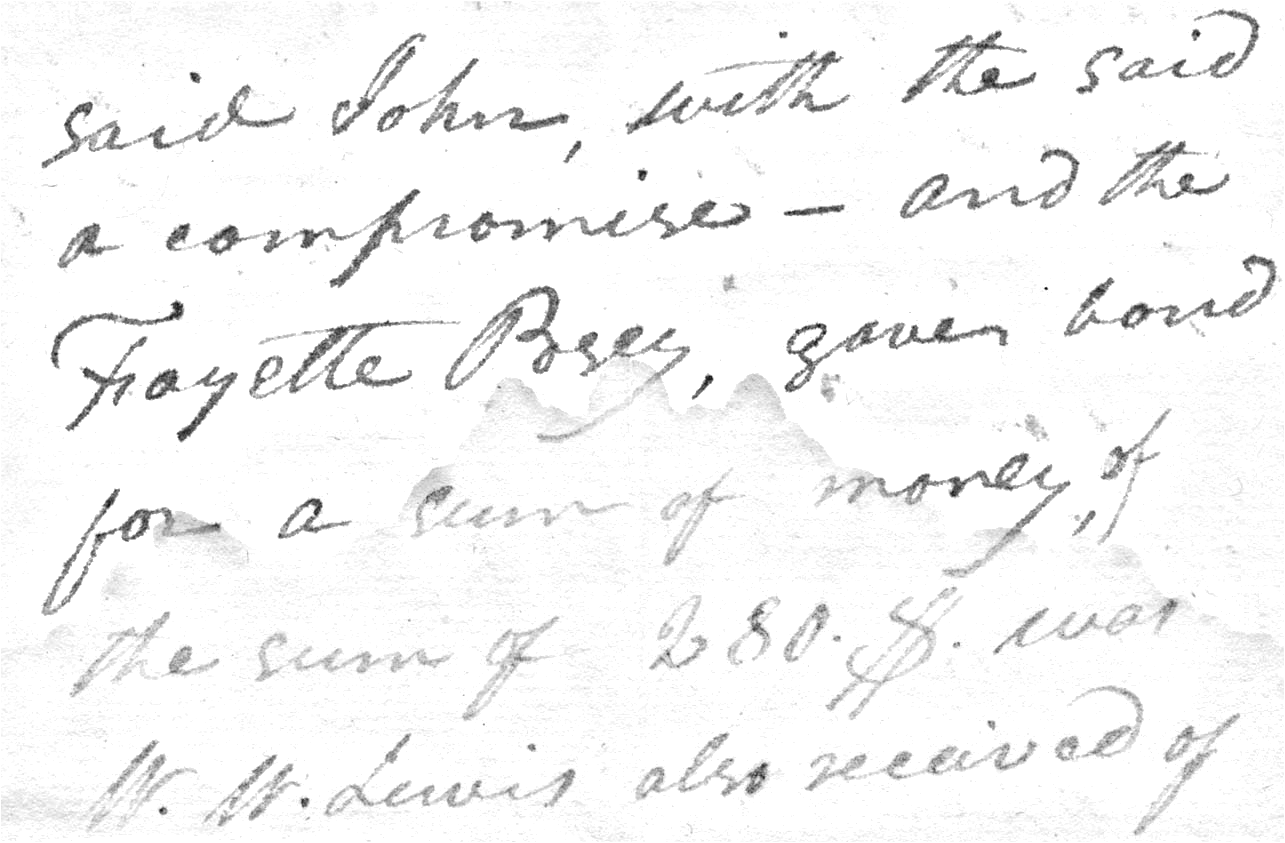 said John, with the said
a compromise – and the
Fayette Posey, gave bond
for a sum of money, of
the sum of 280. $. was
W. W. Lewis also received of